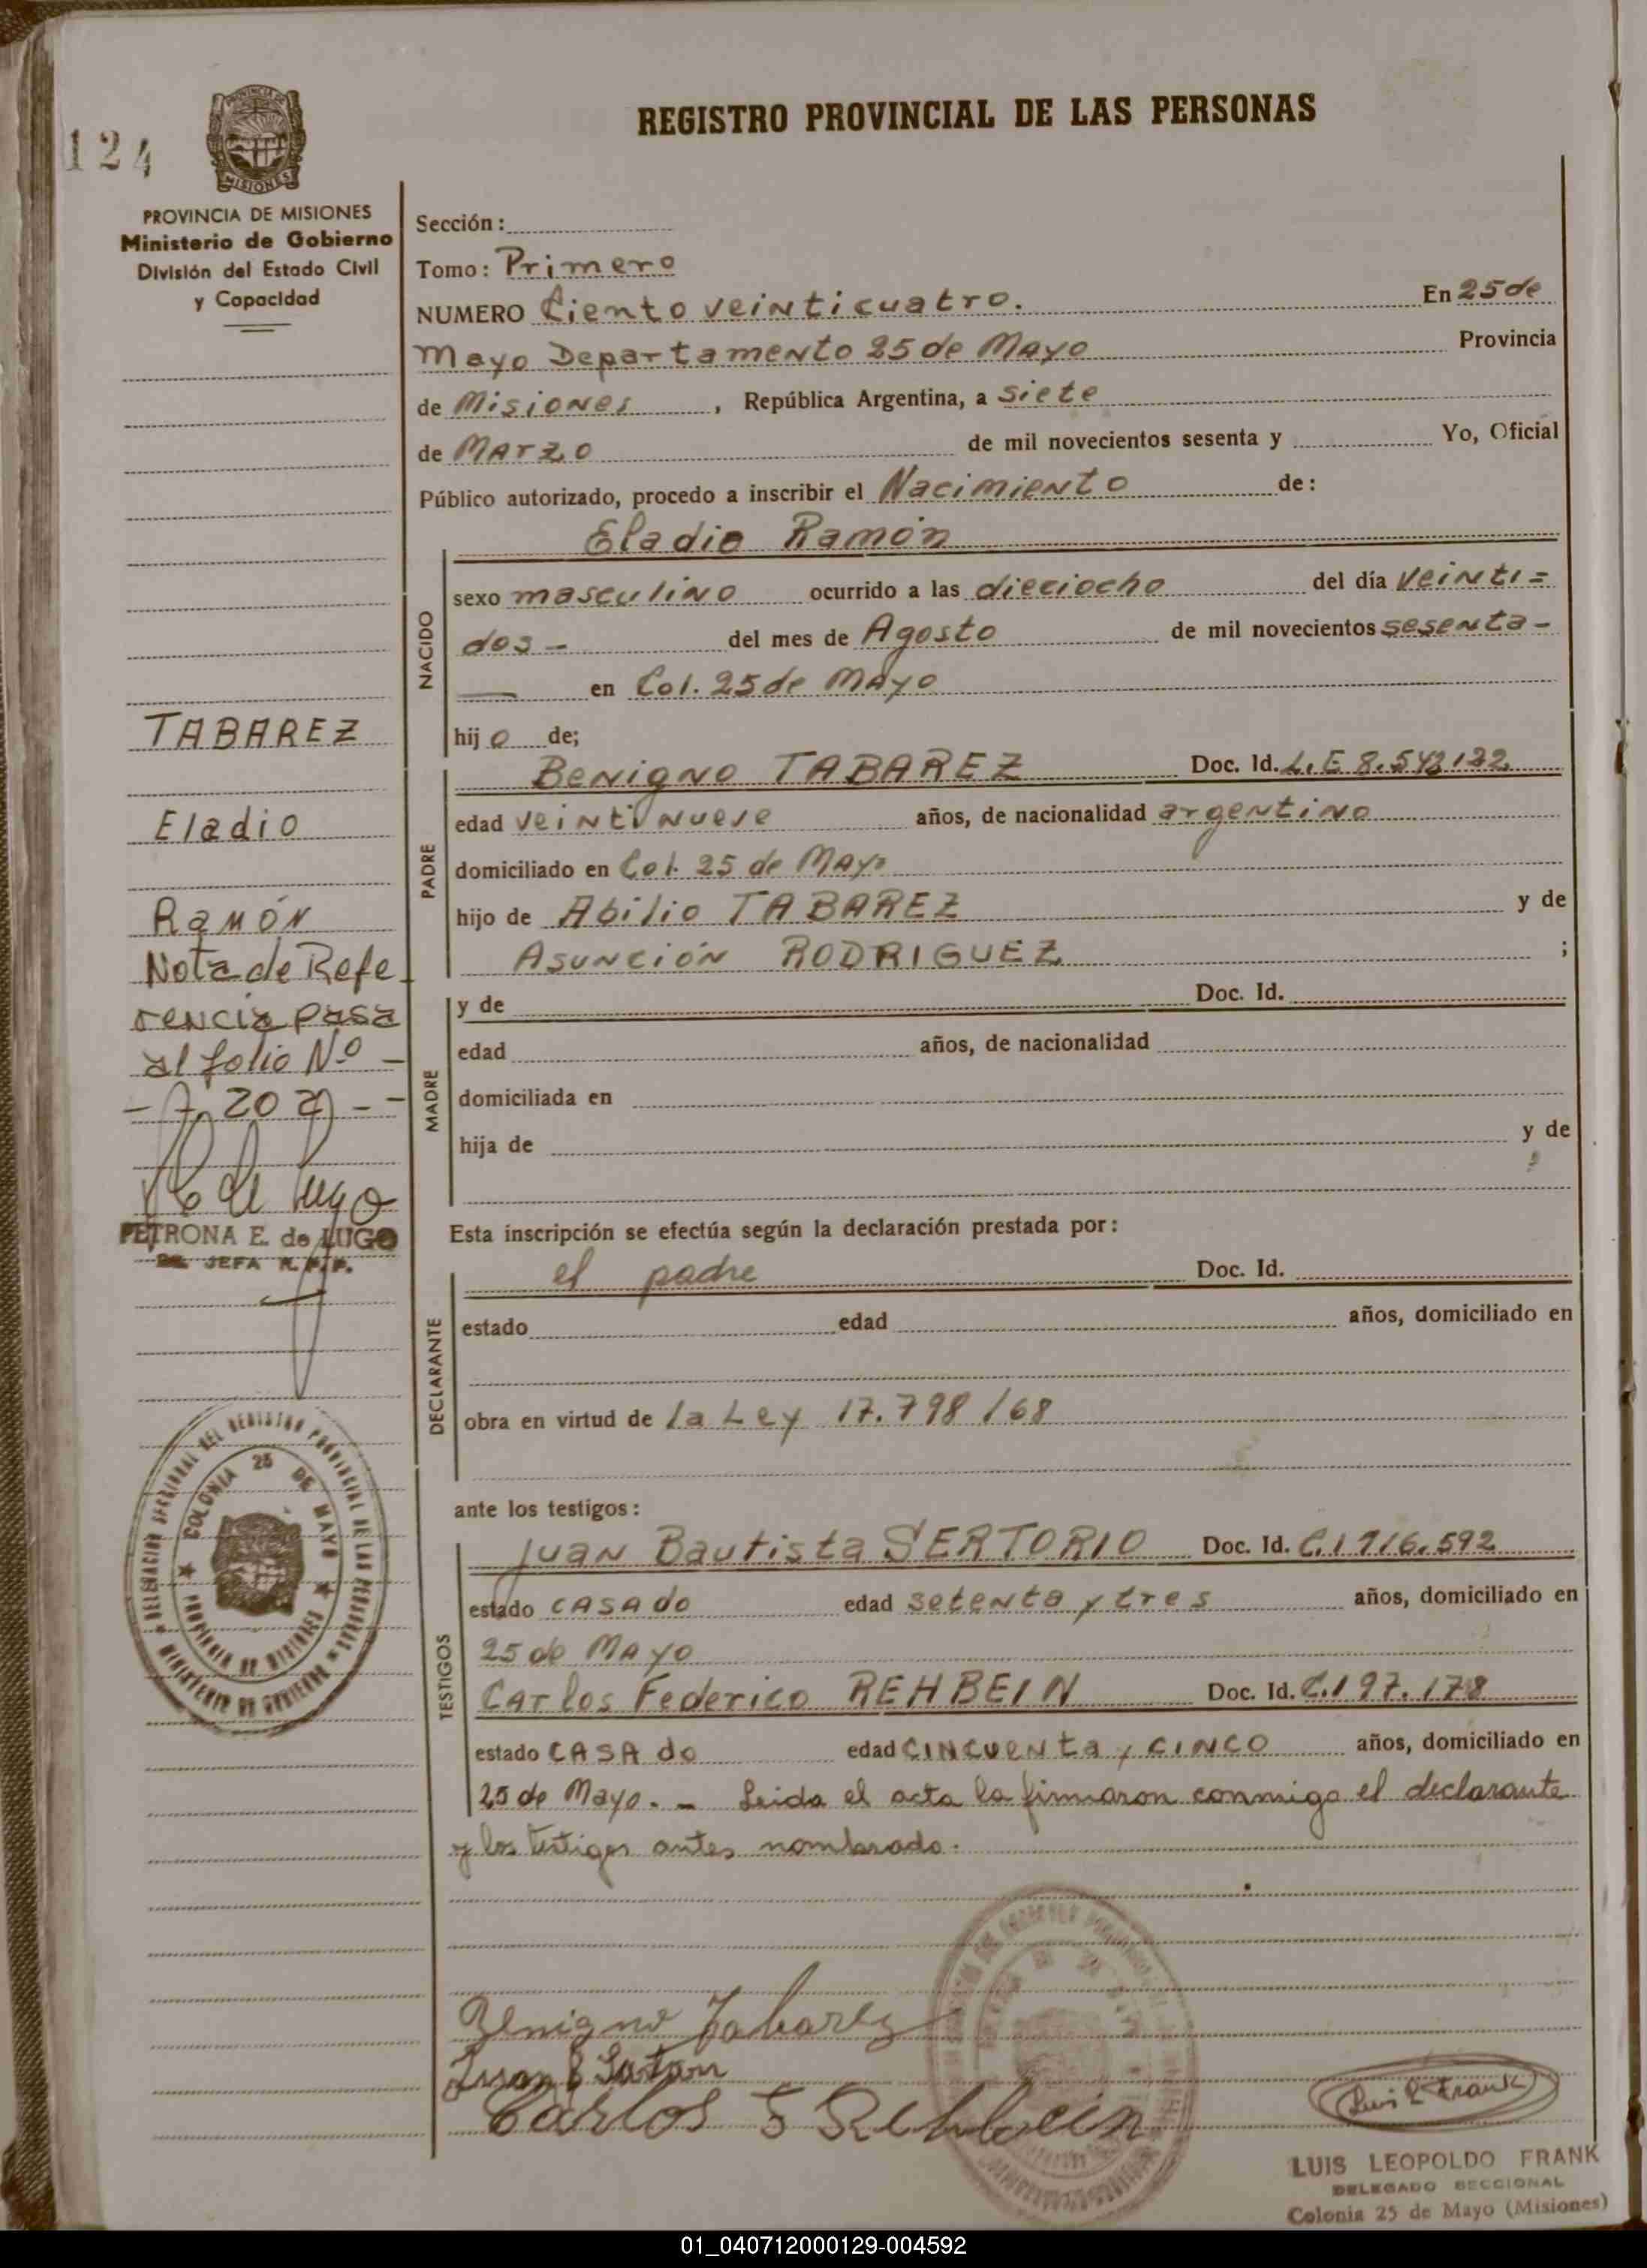 REGISTRO PROVINCIAL DE LAS PERSONAS
124
PROVINCIA DE MISIONES
PROVINCIA DE MISIONES
Ministerio de Gobierno
División del Estado Civil
y Capacidad
Sección:
Tomo: Primero
NUMERO Ciento veinticuatro. En 25 de
Mayo Departamento 25 de Mayo Provincia
de Misiones, República Argentina, a siete
de Marzo de mil novecientos sesenta y Yo, Oficial
Público autorizado, procedo a inscribir el Nacimiento de:
Eladio Ramón
NACIDO
sexo masculino ocurrido a las dieciocho del día veinti=
dos - del mes de Agosto de mil novecientos sesenta -
— en Col. 25 de Mayo
hij o de;
TABAREZ
Eladio
Ramón
Nota de Refe
rencia pasa
al folio Nº -
- 202 - -
PETRONA E. de LUGO
JEFA R. P. P.
PADRE
Benigno TABAREZ Doc. Id. L.E 8.542.122
edad veintinueve años, de nacionalidad argentino
domiciliado en Col. 25 de Mayo
hijo de Abilio TABAREZ y de
Asunción RODRIGUEZ ;
MADRE
y de Doc. Id.
edad años, de nacionalidad
domiciliada en
hija de y de
Esta inscripción se efectúa según la declaración prestada por:
DECLARANTE
el padre Doc. Id.
estado edad años, domiciliado en
obra en virtud de la Ley 17.798/68
DELEGACION SECCIONAL DEL REGISTRO PROVINCIAL DE LAS PERSONAS
MINISTERIO DE GOBIERNO
COLONIA 25 DE MAYO
PROVINCIA DE MISIONES
ante los testigos:
TESTIGOS
Juan Bautista SERTORIO Doc. Id. C.I 716.592
estado casado edad setenta y tres años, domiciliado en
25 de Mayo
Carlos Federico REHBEIN Doc. Id. C.I 97.178
estado casado edad cincuenta y cinco años, domiciliado en
25 de Mayo. - Leida el acta la firmaron conmigo el declarante
y los testigos antes nombrado.
Benigno Tabarez
Carlos F Rehbein
Luis L Frank
LUIS LEOPOLDO FRANK
DELEGADO SECCIONAL
Colonia 25 de Mayo (Misiones)
01_040712000129-004592